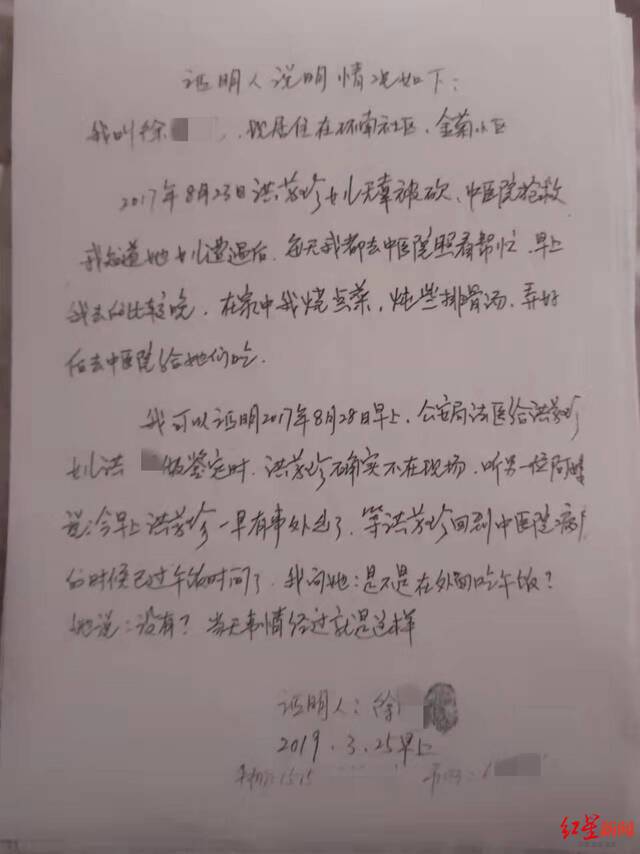 证明人说明情况如下：
我叫徐 ，现居住在环南社区，金菊小区
2017年8月23日洪芬珍女儿无辜被砍、中医院抢救
我知道她女儿遭遇后，每天我都去中医院照看帮忙，早上
我去的比较晚，在家中我烧点菜，炖些排骨汤，弄好
后去中医院给她们吃.
我可以证明2017年8月28日早上，公安局法医给洪芬珍
女儿洪 做鉴定时，洪芬珍确实不在现场，听另一位阿姨
说:今早上洪芬珍一早有事外出了，等洪芬珍回到中医院病
的时候已过午饭时间了，我问她：是不是在外面吃午饭？
她说：没有？当天事情经过就是这样
证明人：徐
2019.3.25早上
红星新闻